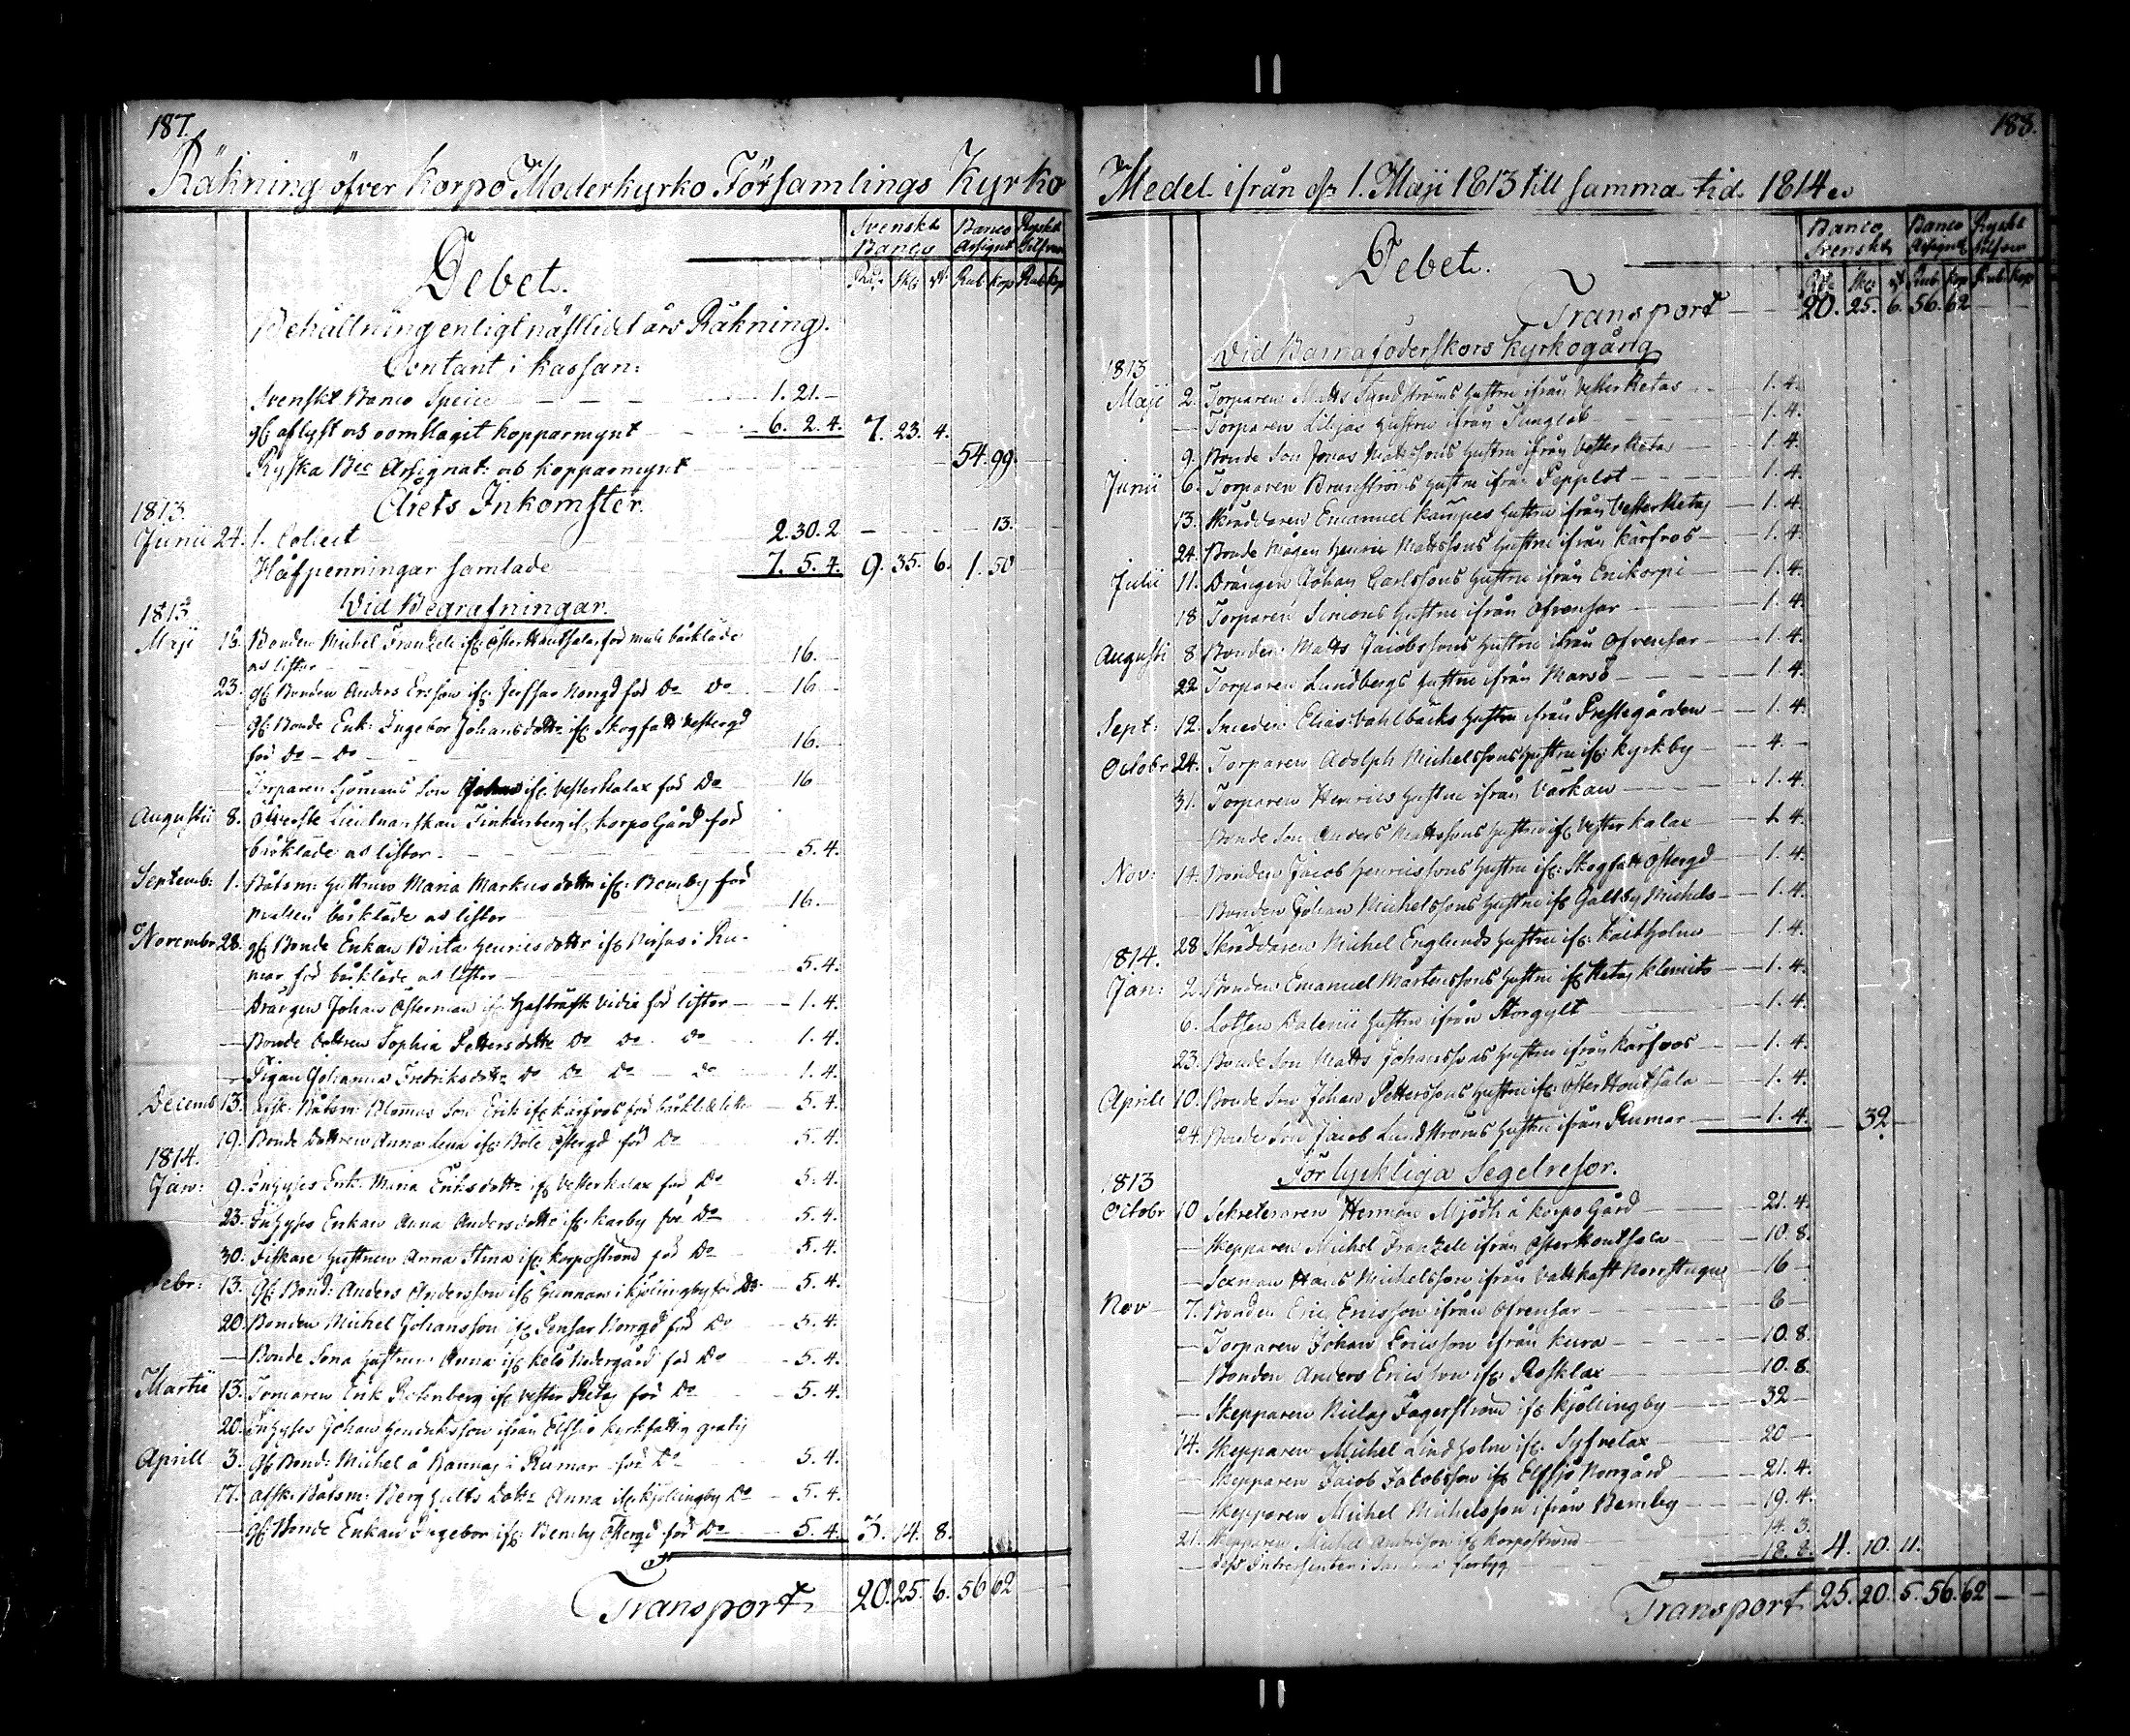 187.
Räkning öfver Korpo Moderkyrko Församlings Kyrko
Svenskt Banco Ryskt
Banco Assignt Silfver
Rdr Sks rst Rub Kop Rub Kop
Debet.
Behållning enligt nästlidet års Räkning.
Contant i kassan:
Svenskt Banco Specie 1. 21. —
gl. aflyst och oomslagit kopparmynt 6. 2. 4. 7. 23. 4.
Ryska Bco Assignat: och kopparmynt 54. 99.
Årets Inkomster.
1813.
Junii 24. 1. Collect 2. 30. 2 — 13.
Håfpenningar samlade 7. 5. 4. 9. 35. 6. 1. 50
Vid Begrafningar.
1813
Maji 13. Bonden Michel Franzele ifr. Öster Hontsala, för bårkläde
och listor 16. —
23. gl. Bonden Anders Ersson ifr. Norrgd för Do Do 16 —
gl. Bonde Enk: Ingebor Johansdotter ifr. Skogfatt Vestergd
för Do — Do 16. —
Torparen Sjömans Son Johan ifr. Vesterkalax för Do 16 —
Augustii 8. Öfverste Lieutnantskan Finkenberg ifr. Korpo Gård för
bårkläde och listor 5. 4.
Septemb: 1. Båtsm: Hustruns Maria Markusdotter ifr. Bemby för
bårkläde och listor 16. —
Novembr 28. gl. Bonde Enkan Brita Henricsdotter ifr. i Ru-
mar för bårkläde och listor 5. 4.
Drängen Johan Österman ifr. Hafträsk Vidie för listor 1. 4.
Bonde dottren Sophia Pettersdotter Do Do Do 1. 4.
Pigan Johanna Fredriksdotter Do Do Do — Do 1. 4.
Decemb 13. afsk: Båtsm: Blommas Son Erik ifr. Kårfvos för bårkläde listor 5. 4.
19. Bonde Dottren Anna Lena ifr. Böle Östergd för Do 5. 4.
1814.
Jan: 9. Inhyses Enk: Maria Eriksdotter ifr. Vesterkalax för Do 5. 4.
23. Inhyses Enkan Anna Andersdotter ifr. Karby för Do 5. 4.
30. Fiskare Hustrun Anna Stina ifr. Korpostrand för Do 5. 4.
Febr: 13. gl. Bond: Anders Andersson ifr. Gunnars i Kjellingby för Do 5. 4.
20. Bonden Michel Johansson ifr. Norrgd för Do 5. 4.
— Bonde Sona Hustrun Anna ifr. Kelö Nedergård för Do 5. 4.
Martii 13. Enk ifr. Vester Retas för Do 5. 4.
20. Inhyses Johan Hendriksson ifrån Elfsjö kyrkfattig gratis
Aprill 3. gl. Bond: Michel å Bannas i Rumar för Do 5. 4.
17. afsk: Båtsm: Berghults Dotter Anna ifr. Kjellingby Do 5. 4.
— gl. Bonde Enkan Ingebor ifr. Bemby Östergd för Do 5. 4. 3. 14. 8.
Transport 20. 25. 6. 56 62
188.
Medel ifrån d. 1. Maji 1813 till samma tid 1814
Banco Banco Ryskt
Svenskt Assignt Silfver
Rdr Sks rst Rub Kop Rub Kop
Debet.
Transport 20. 25. 6. 56. 62
Vid Barnaföderskors Kyrkogång
1813
Maji 2. Torparen Matts Sundströms Hustru ifrån Vester Retas 1. 4.
— Torparen Liljas Hustru ifrån 1. 4.
9. Bonde Son Jonas Mattssons Hustru ifrån Vester Retas 1. 4.
Junii 6. Torparen Hustru ifrån Pepplot 1. 4.
13. Skräddaren Emanuel Kampes Hustru ifrån Vester Retas 1. 4.
24. Bonde Mågen Henric Mattssons Hustru ifrån Kårfvos 1. 4.
Julii 11. Drängen Johan Carlssons Hustru ifrån Enikorpi 1. 4.
18 Torparen Simons Hustru ifrån Ofvensar 1. 4.
Augusti 8 Bonden Matts Jacobssons Hustru ifrån Ofvensar 1. 4.
22 Torparen Lundbergs Hustru ifrån Marsö 1. 4.
Sept: 12. Smeden Elias Vahlbäcks Hustru ifrån Prestegården 1. 4.
Octobr 24. Torparen Adolph Michelssons Hustru ifr. Kyrkby 4. —
31. Torparen Henrics Hustru ifrån Vårkan 1. 4.
— Bonde Son Anders Mattssons Hustru ifr. Vester Kalax 1. 4.
Nov: 14. Bonden Jacob Henricssons Hustru ifr. Skogfatt Östergd 1. 4.
— Bonden Johan Michelssons Hustru ifr. Galtby Michels 1. 4.
28 Skräddaren Michel Englunds Hustru ifr. 1. 4.
1814.
Jan: 2. Bonden Emanuel Mårtenssons Hustru ifr. Retas Klemets 1. 4.
6. Lotsen Hustru ifrån Storgylt 1. 4.
23. Bonde Son Matts Johanssons Hustru ifrån Kårfvos 1. 4.
Aprill 10. Bonde Son Johan Petterssons Hustru ifr. Öster Hontsala 1. 4.
24. Bonde Son Jacob Lundströms Hustru ifrån Rumar 1. 4. — 32 —
För lyckliga Segelresor.
1813
Octobr 10 Sekreteraren Herman Mjödh å Korpo Gård 21. 4.
— Skepparen Michel Franzele ifrån Öster Hontsala 10. 8.
— Sexman Hans Michelsson ifrån Vattkast Norrstugu 16 —
Nov 7. Bonden Eric Ericsson ifrån Ofvensar 6 —
— Torparen Johan Ericsson ifrån Kura 10. 8.
— Bonden Anders Ericsson ifr. Rosklax 10. 8.
— Skepparen Niclas Fagerström ifr. Kjellingby 32 —
14. Skepparen Michel Lindholm ifr. Syfvelax 20 —
— Skepparen Jacob Jacobsson ifr. Elfsjö Norrgård 21. 4.
— Skepparen Michel Michelsson ifrån Bemby 19. 4.
21. Skepparen Michel Andersson ifr. Korpostrand 14. 3.
— Dess Intressenter i samma fartyg 18. 8. 4. 10. 11.
Transport 25. 20. 5. 56. 62 — —